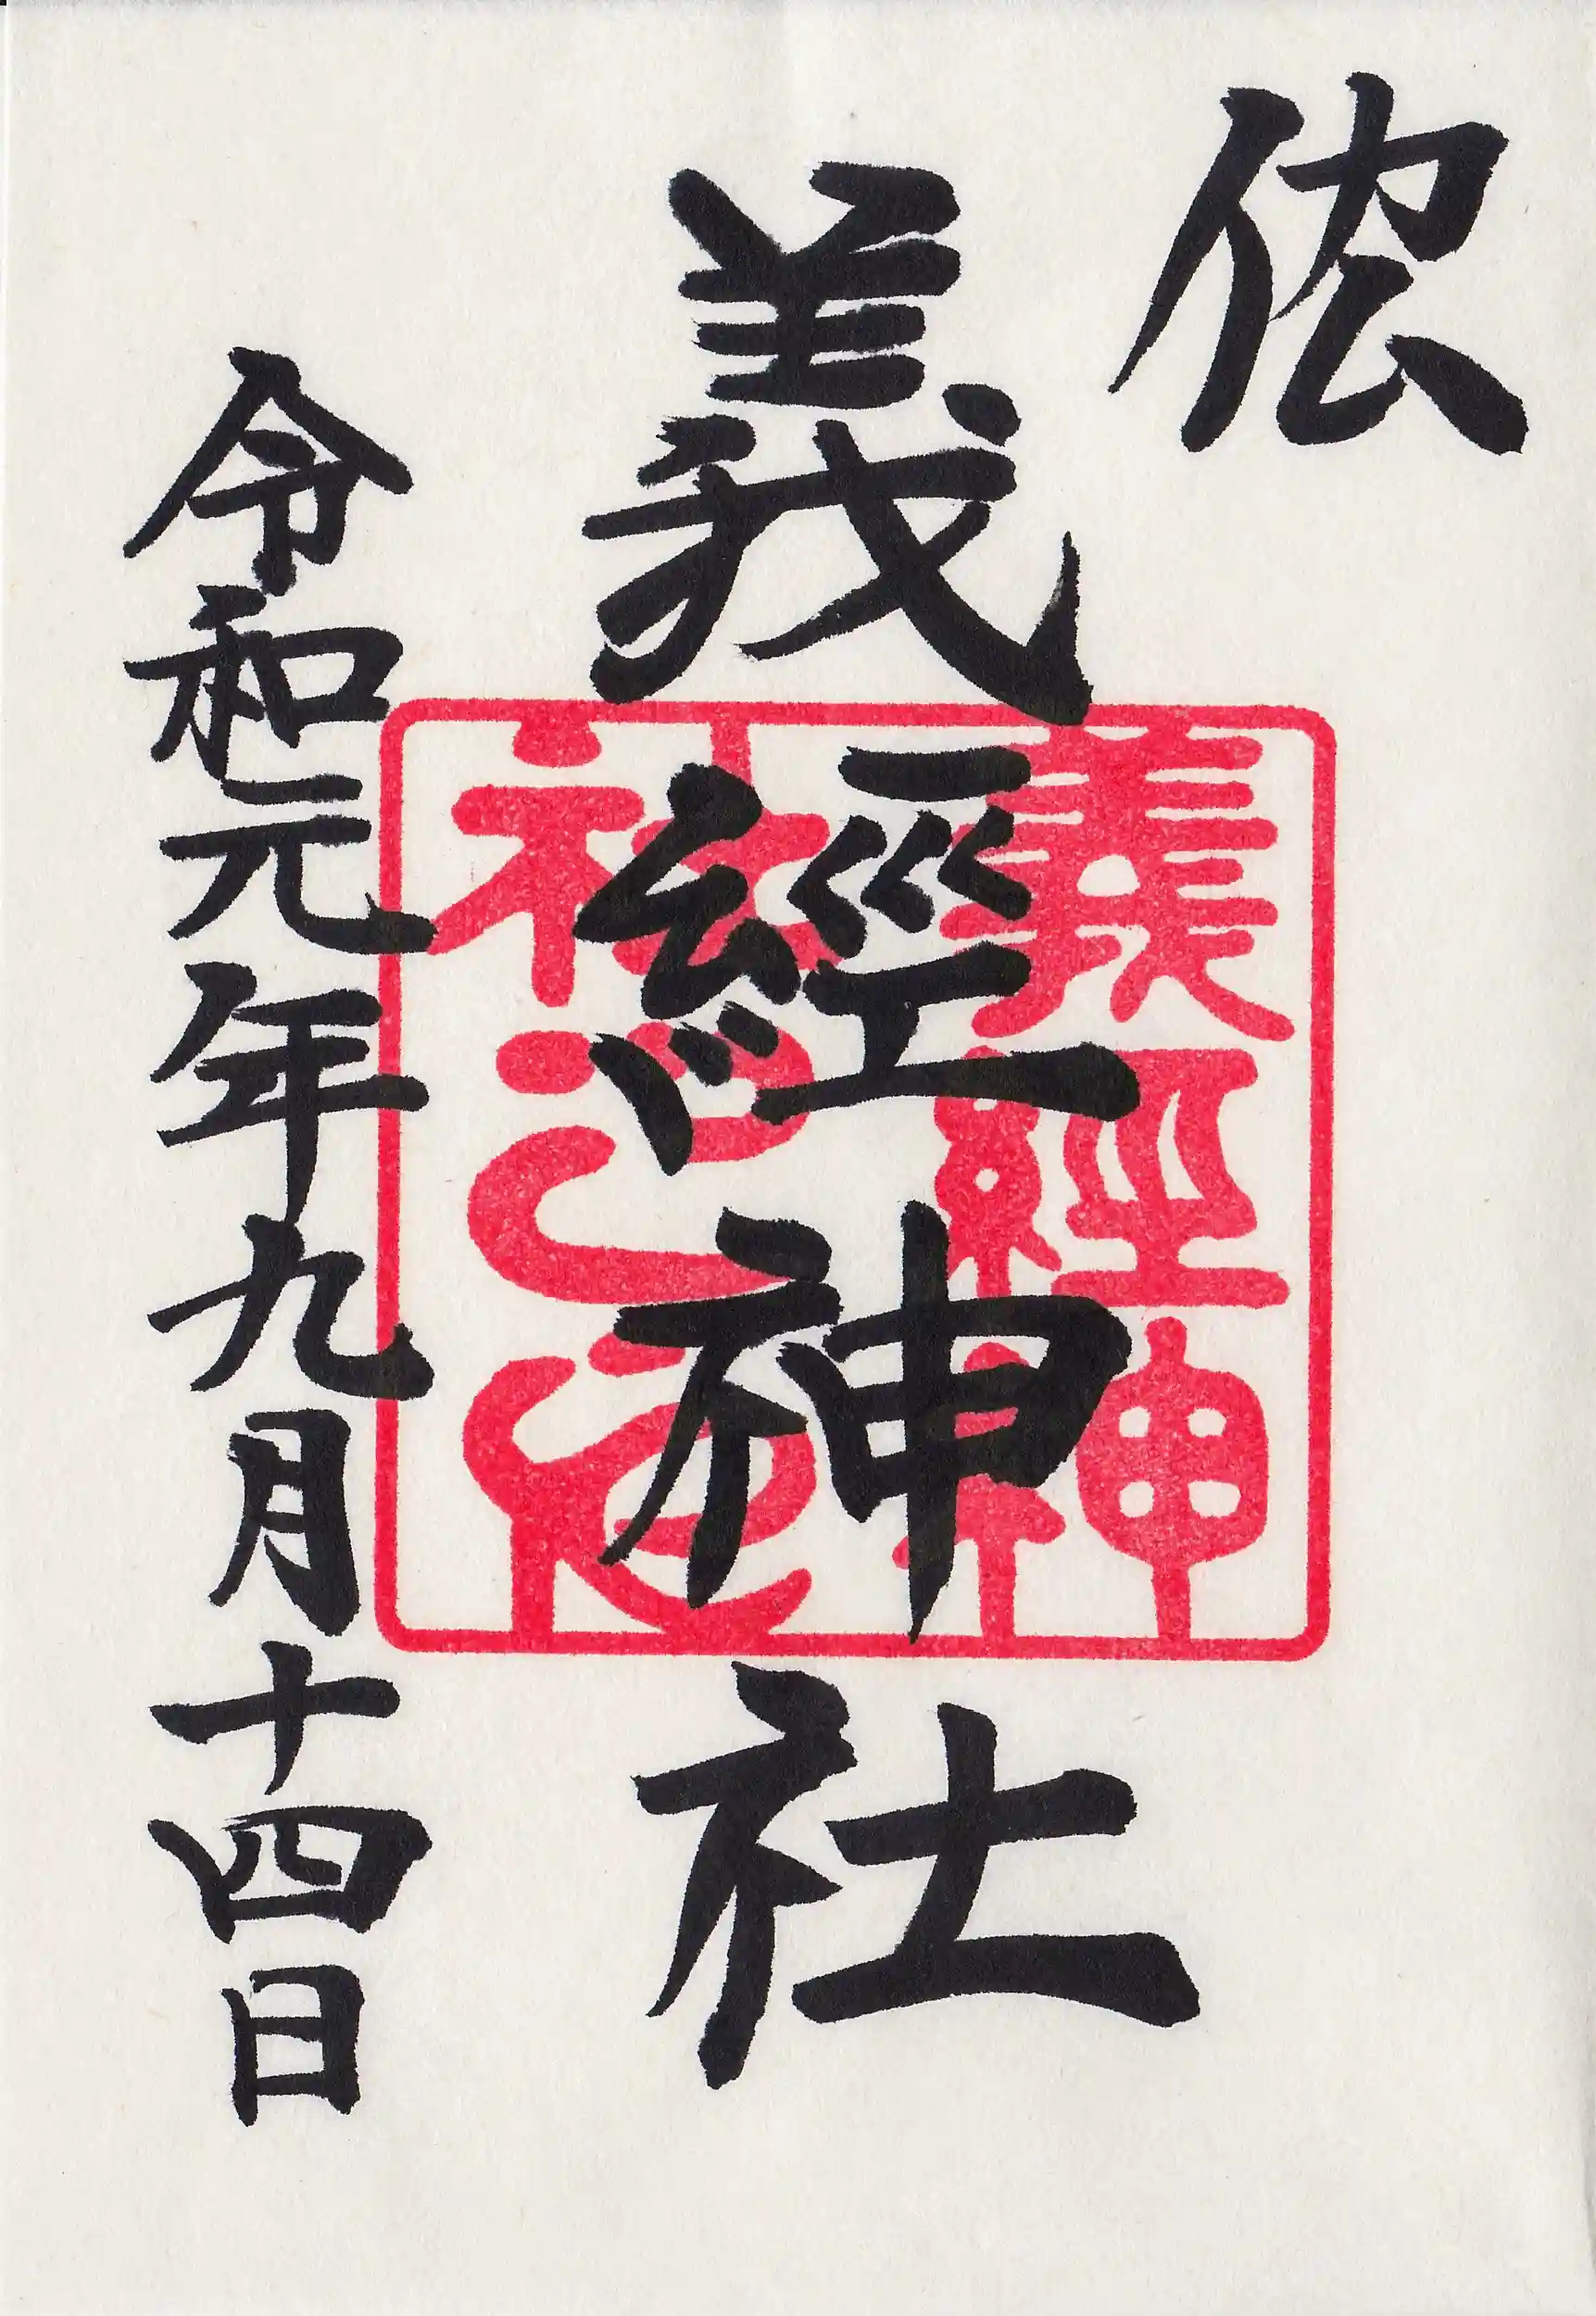 義經神社
令和元年九月十四日
義經神
社